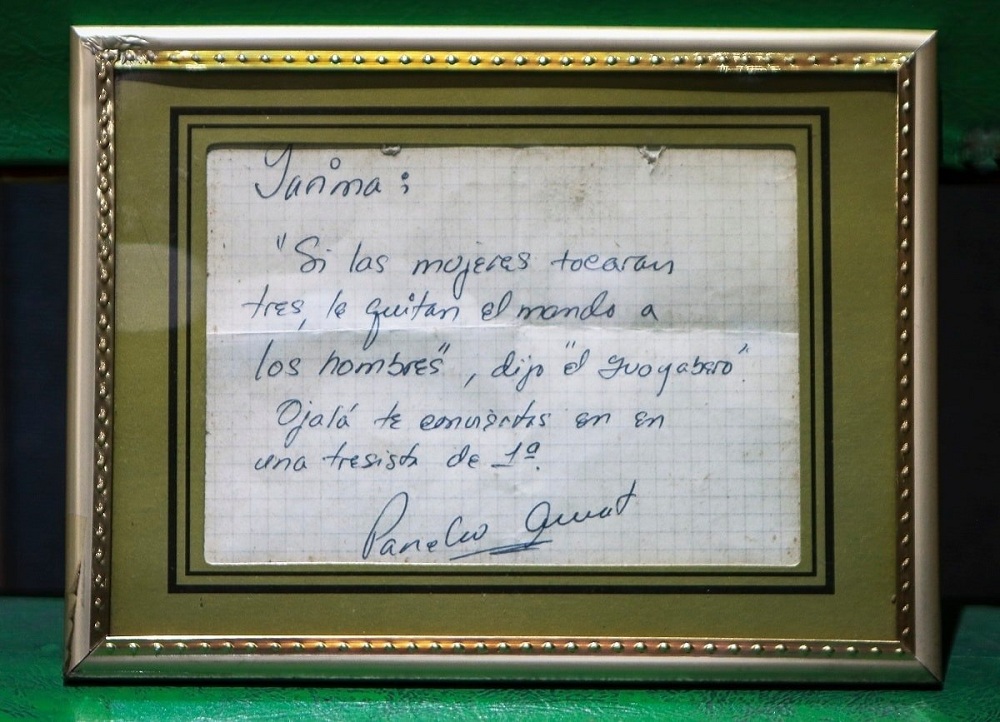 Yarima:
"Si las mujeres tocaran
tres, le quitan el mando a
los hombres", dijo "el guayabero"
Ojalá te conviertas en en
una tresista de 1ª.
Pancho Amat